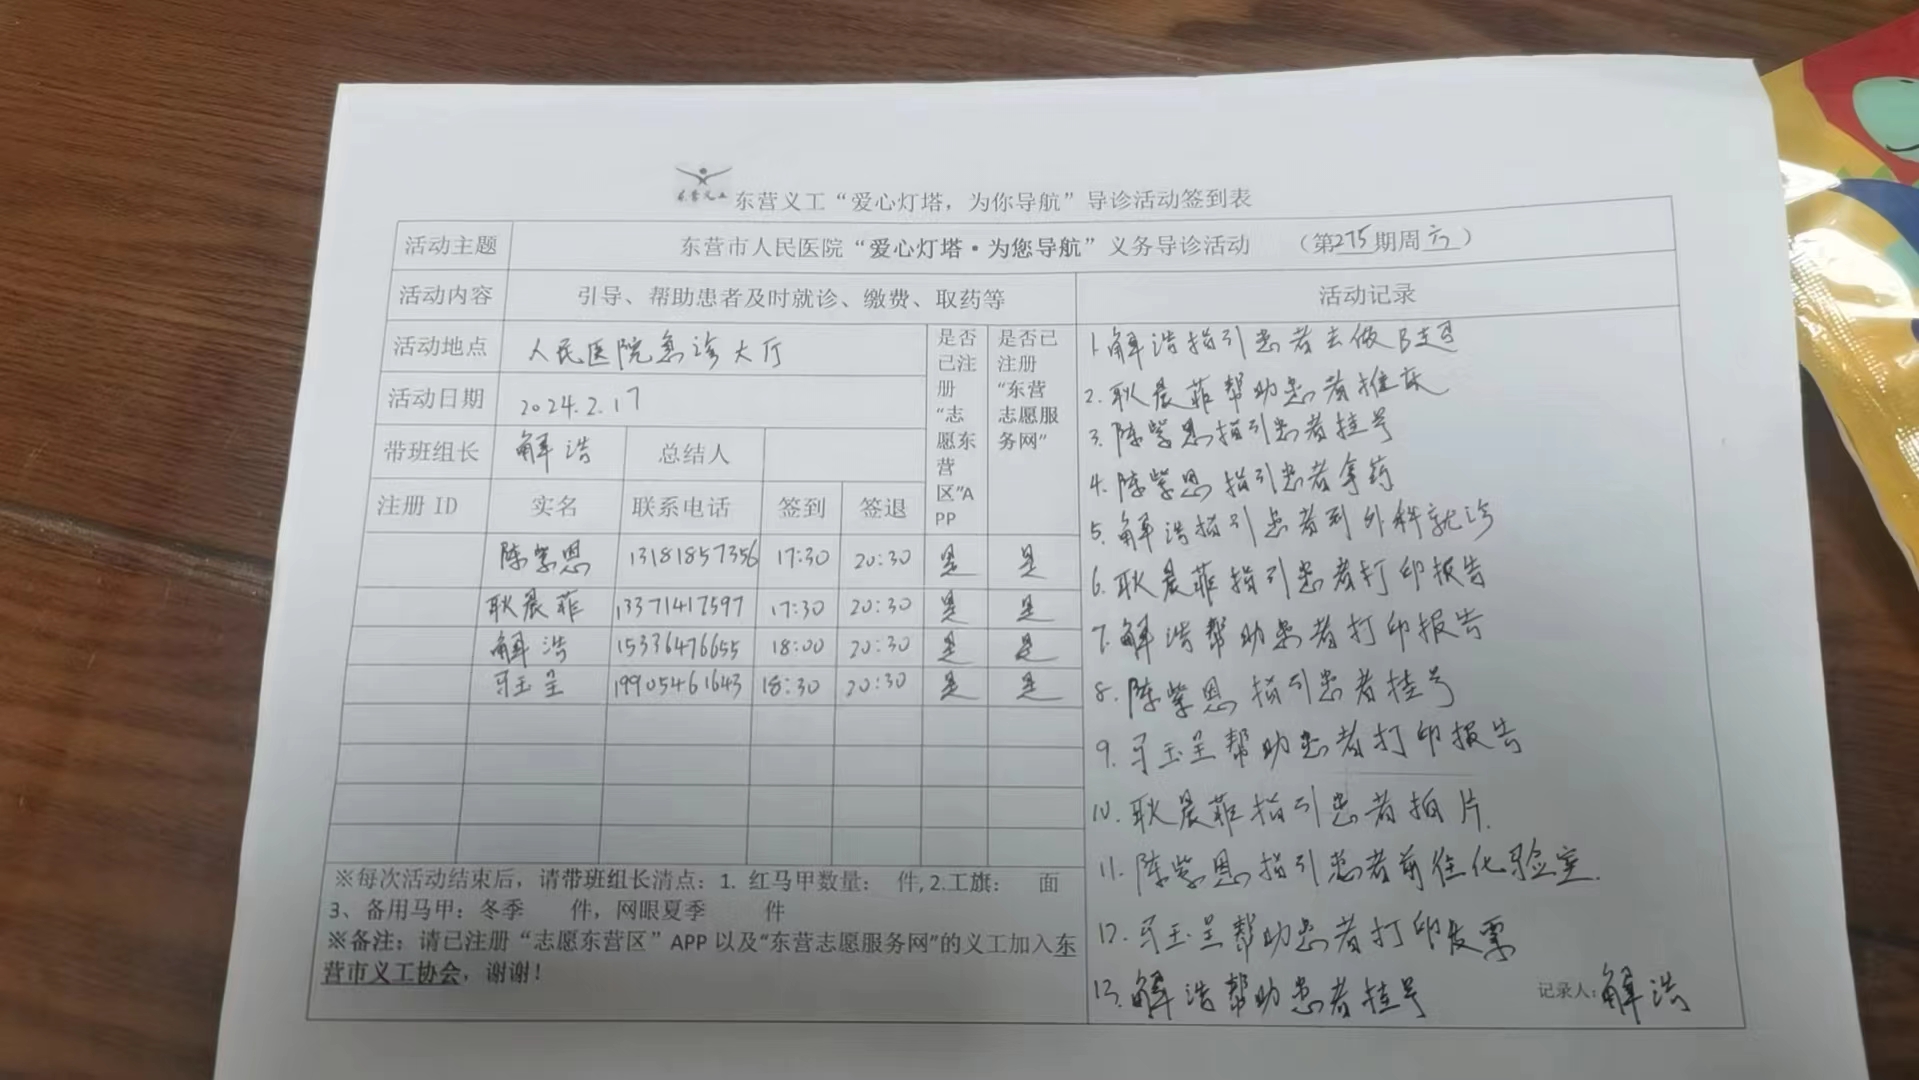 东营义工
东营义工“爱心灯塔，为你导航”导诊活动签到表
活动主题 东营市人民医院“爱心灯塔·为您导航”义务导诊活动 （第275期周六）
活动内容 引导、帮助患者及时就诊、缴费、取药等 活动记录
活动地点 人民医院急诊大厅
活动日期 2024.2.17
带班组长 解浩 总结人
注册 ID 实名 联系电话 签到 签退
是否已注册“志愿东营区”APP
是否已注册“东营志愿服务网”
陈紫恩 13181857356 17:30 20:30 是 是
耿晨菲 13371417597 17:30 20:30 是 是
解浩 15336476655 18:00 20:30 是 是
马玉呈 19905461643 18:30 20:30 是 是
※每次活动结束后，请带班组长清点：1. 红马甲数量： 件, 2.工旗： 面
3、备用马甲：冬季 件，网眼夏季 件
※备注：请已注册“志愿东营区”APP 以及“东营志愿服务网”的义工加入东
营市义工协会，谢谢！
1.解浩指引患者去做B超
2.耿晨菲帮助患者推床
3.陈紫恩指引患者挂号
4.陈紫恩指引患者拿药
5.解浩指引患者到外科就诊
6.耿晨菲指引患者打印报告
7.解浩帮助患者打印报告
8.陈紫恩指引患者挂号
9.马玉呈帮助患者打印报告
10.耿晨菲指引患者拍片.
11.陈紫恩指引患者前往化验室.
12.马玉呈帮助患者打印发票
13.解浩帮助患者挂号
记录人：解浩